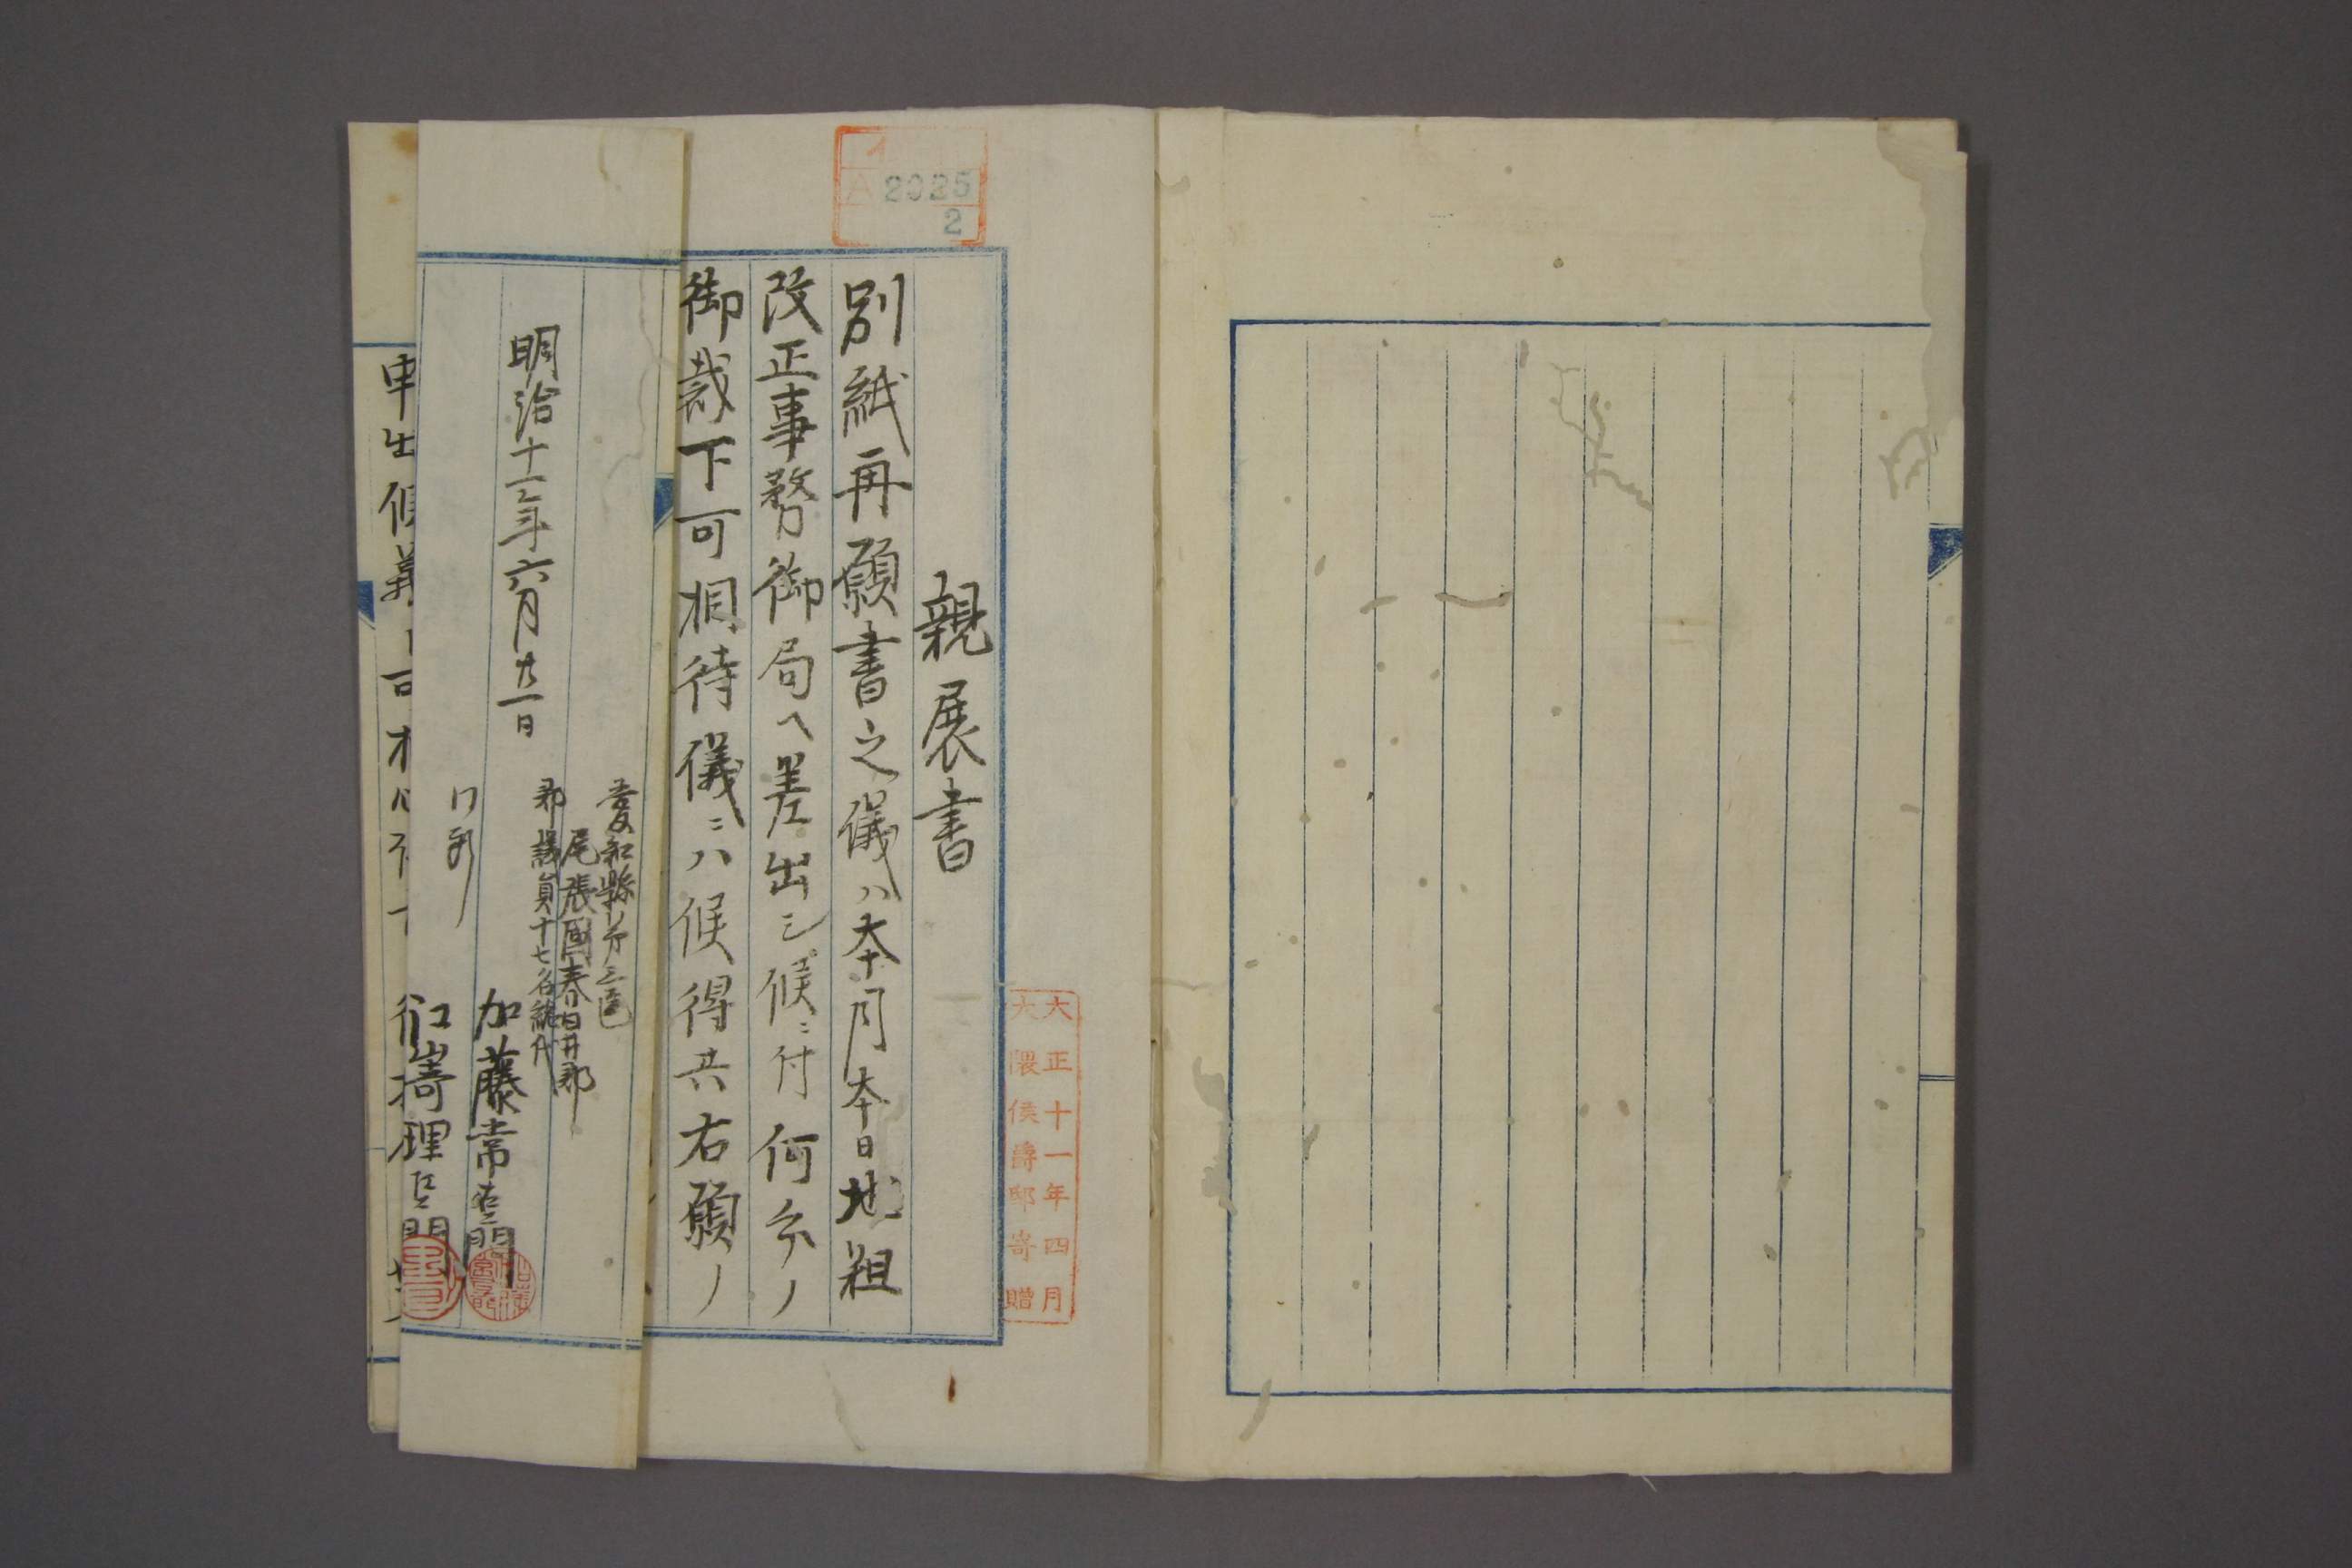 イ
A 2025
2
大正十一年四月
大隈侯爵邸寄贈
親展書
別紙再願書之儀ハ本月本日地租
改正事務御局ヘ差出シ候ニ付何分ノ
御裁下可相待儀ニハ候得共右願ノ
愛知縣下第三區
尾張國春日井郡
郡議員十七名総代
明治十一年六月廿一日
加藤常左エ門
同断
申出候義